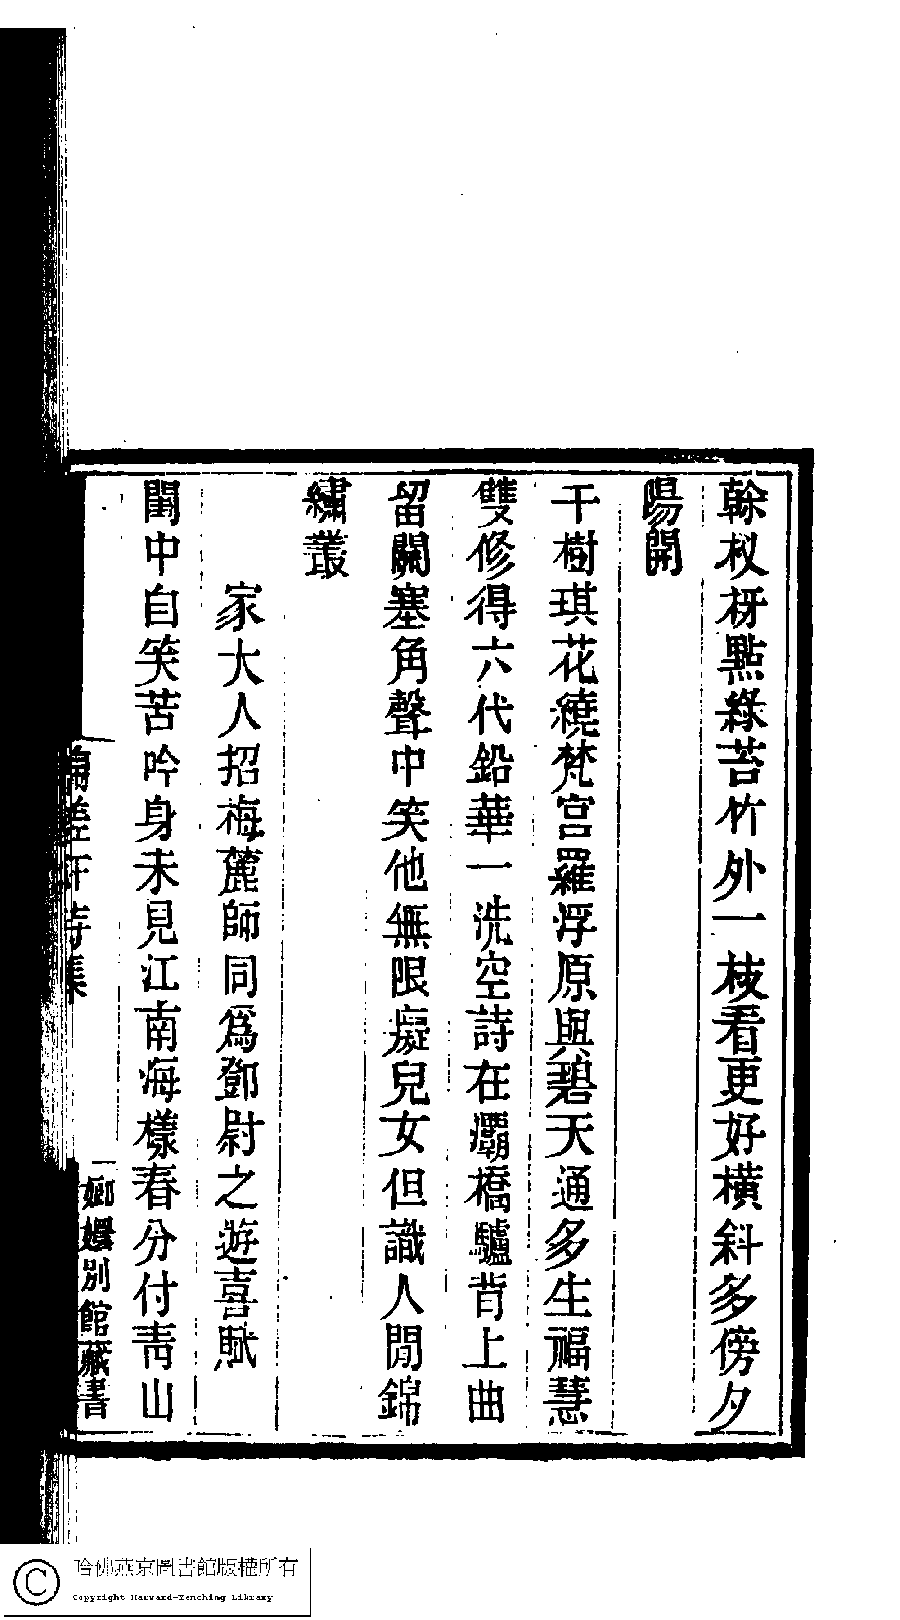 榦杈枒點綠苔竹外一枝看更好橫斜多傍夕
陽開
千樹琪花繞梵宮羅浮原與碧天通多生福慧
雙修得六代鉛華一洗空詩在灞橋驢背上曲
留關塞角聲中笑他無限癡兒女但識人間錦
繡叢
家大人招梅麓師同爲鄧尉之遊喜賦
閨中自笑苦吟身未見江南海樣春分付靑山
嫏嬛別館藏書
哈佛燕京圖書館版權所有
Copyright Harvard-Yenching Library